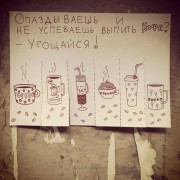 Опаздываешь и
не успеваешь выпить кофе?
— Угощайся!